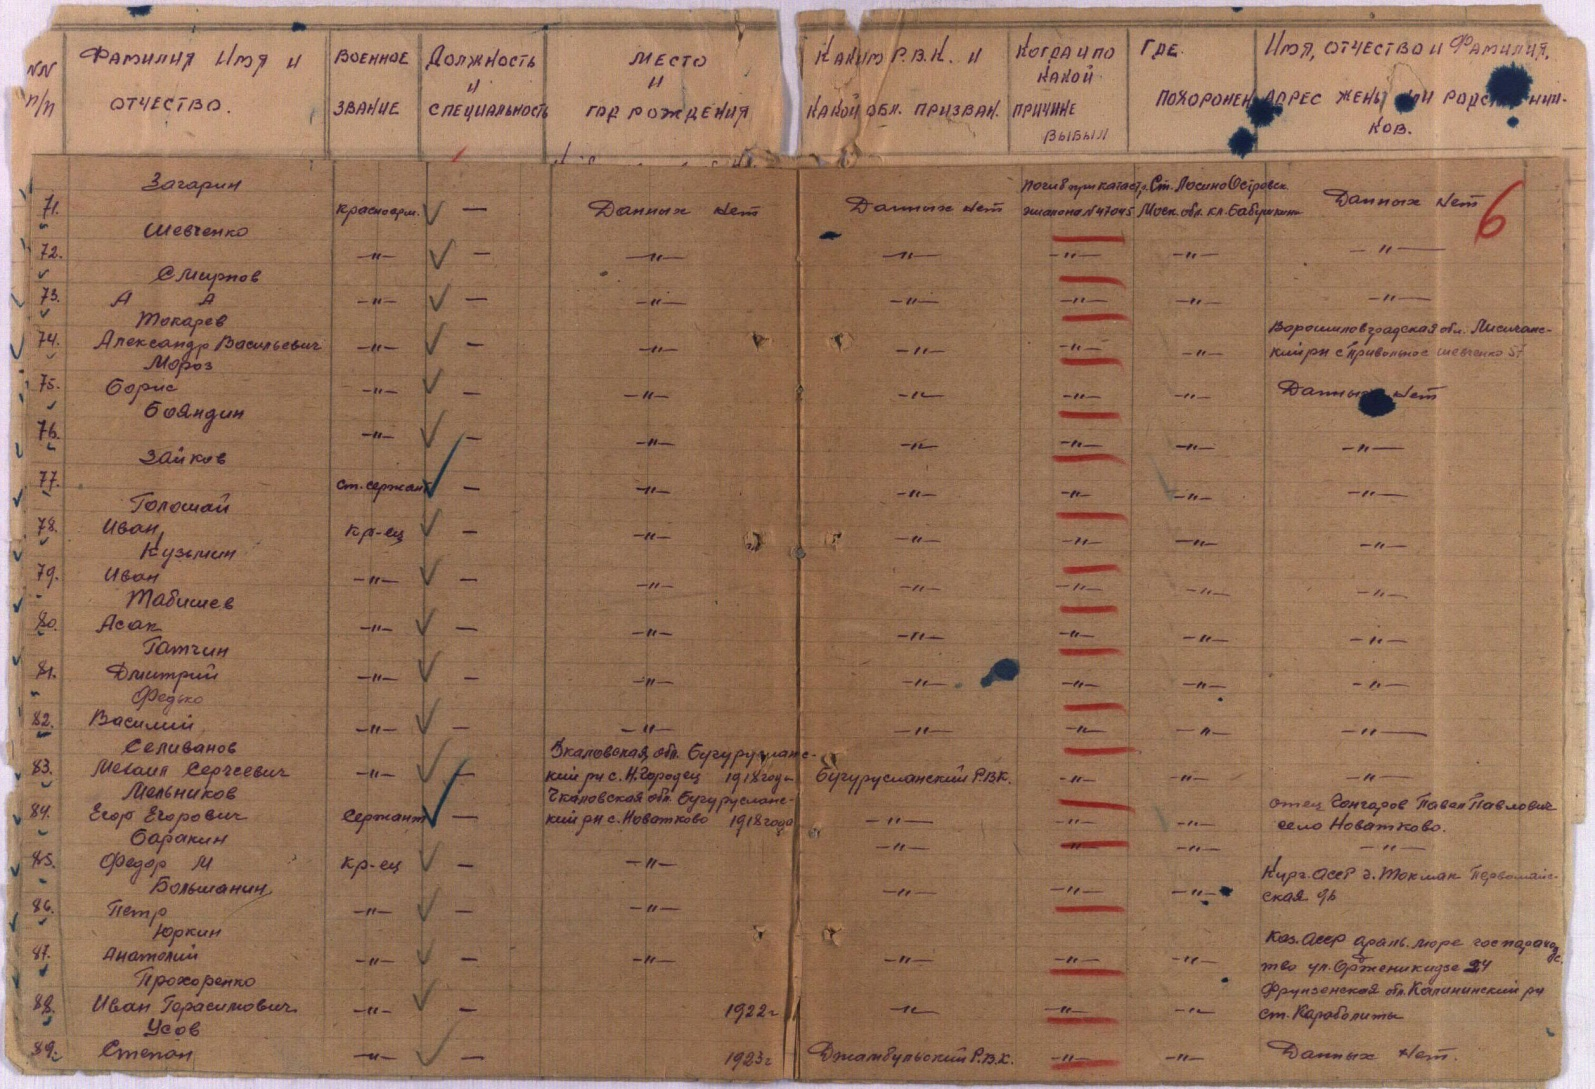 NN п/п
Фамилия Имя и отчество.
Военное звание
Должность и специальность
Место и год рождения
Каким Р.В.К. и какой обл. призван.
Когда и по какой причине выбыл
Где похоронен
Имя, отчество и Фамилия, адрес жены или родственников.
6
71. Загарин Красноарм. — Данных нет Данных нет погиб при катастр. эшалона N47045 Ст. ЛосиноОстровск. Моск. обл. кл. Бабушкин Данных нет
72. Шевченко —"— — —"— —"— —"— —"— —"—
73. Смирнов А А —"— — —"— —"— —"— —"— —"—
74. Токарев Александр Васильевич —"— — —"— —"— —"— —"— Ворошиловградская обл. Лисичанский рн с Привольное Шевченко 57
75. Мороз Борис —"— — —"— —"— —"— —"— Данных нет
76. Бояндин —"— — —"— —"— —"— —"— —"—
77. Зайков ст. сержант — —"— —"— —"— —"— —"—
78. Голошай Иван кр-ец — —"— —"— —"— —"— —"—
79. Кузьмин Иван —"— — —"— —"— —"— —"— —"—
80. Табишев Асак —"— — —"— —"— —"— —"— —"—
81. Гатчин Дмитрий —"— — —"— —"— —"— —"— —"—
82. Федько Василий —"— — —"— —"— —"— —"— —"—
83. Селиванов Михаил Сергеевич —"— — Чкаловская обл. Бугурусланский рн с. Н.Городец 1918 года Бугурусланский Р.В.К. —"— —"— —"—
84. Мельников Егор Егорович Сержант — Чкаловская обл. Бугурусланский рн с. Новатково 1918 года —"— —"— —"— отец Гончаров Павел Павлович село Новатково.
85. Баракин Федор М кр-ец — —"— —"— —"— —"—
86. Большанин Петр —"— — —"— —"— —"— —"— Кирг. АССР г. Токмак Первомайская 96
87. Юркин Анатолий —"— — —"— —"— —"— —"— Каз. АССР араль. море госпароходство ул. Орженикидзе 24
88. Прохоренко Иван Герасимович —"— — 1922г —"— —"— —"— Фрунзенская обл. Калининский рн ст. Карабалты
89. Усов Степан —"— — 1923г Джамбульский Р.В.К. —"— —"— Данных нет.